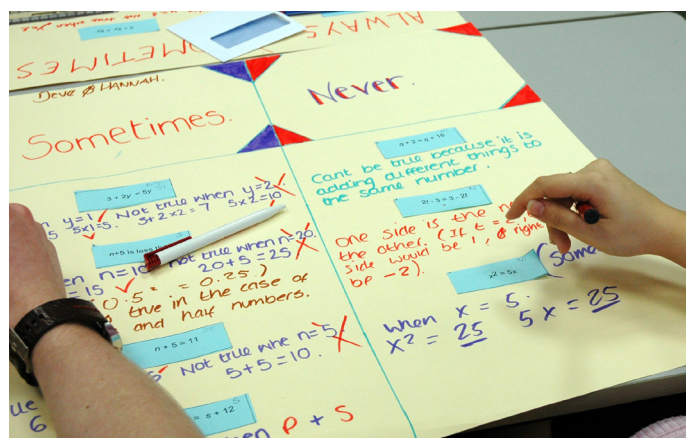 ALWAYS
SOMETIMES
Deve & HANNAH.
Sometimes.
3 + 2y = 5y
y=1 Not true when y=2
5x1=5. 5+2x2=7 5x2=10
n+5 is less
n=10 Not true when n=20.
=15 20+5=25
0.5 = 0.25.)
true in the case of
and half numbers.
n + 5 = 11
Not true whe n=5
5+5=10.
= s + 12
6
P + S
Never.
q + 2 = q + 16
Cant be true because it is
adding different things to
the same number.
2t - 3 = 3 - 2t
One side is the
the other. (If t =
side would be 1, & right
be -2).
x² = 5x
(Some
when x = 5.
x² = 25 5x = 25